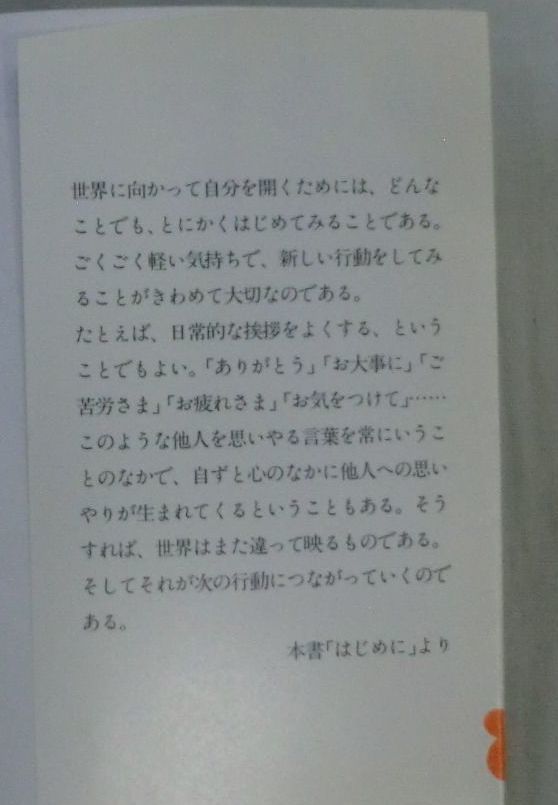 世界に向かって自分を開くためには、どんな
ことでも、とにかくはじめてみることである。
ごくごく軽い気持ちで、新しい行動をしてみ
ることがきわめて大切なのである。
たとえば、日常的な挨拶をよくする、という
ことでもよい。「ありがとう」「お大事に」「ご
苦労さま」「お疲れさま」「お気をつけて」……
このような他人を思いやる言葉を常にいうこ
とのなかで、自ずと心のなかに他人への思い
やりが生まれてくるということもある。そう
すれば、世界はまた違って映るものである。
そしてそれが次の行動につながっていくので
ある。
本書「はじめに」より